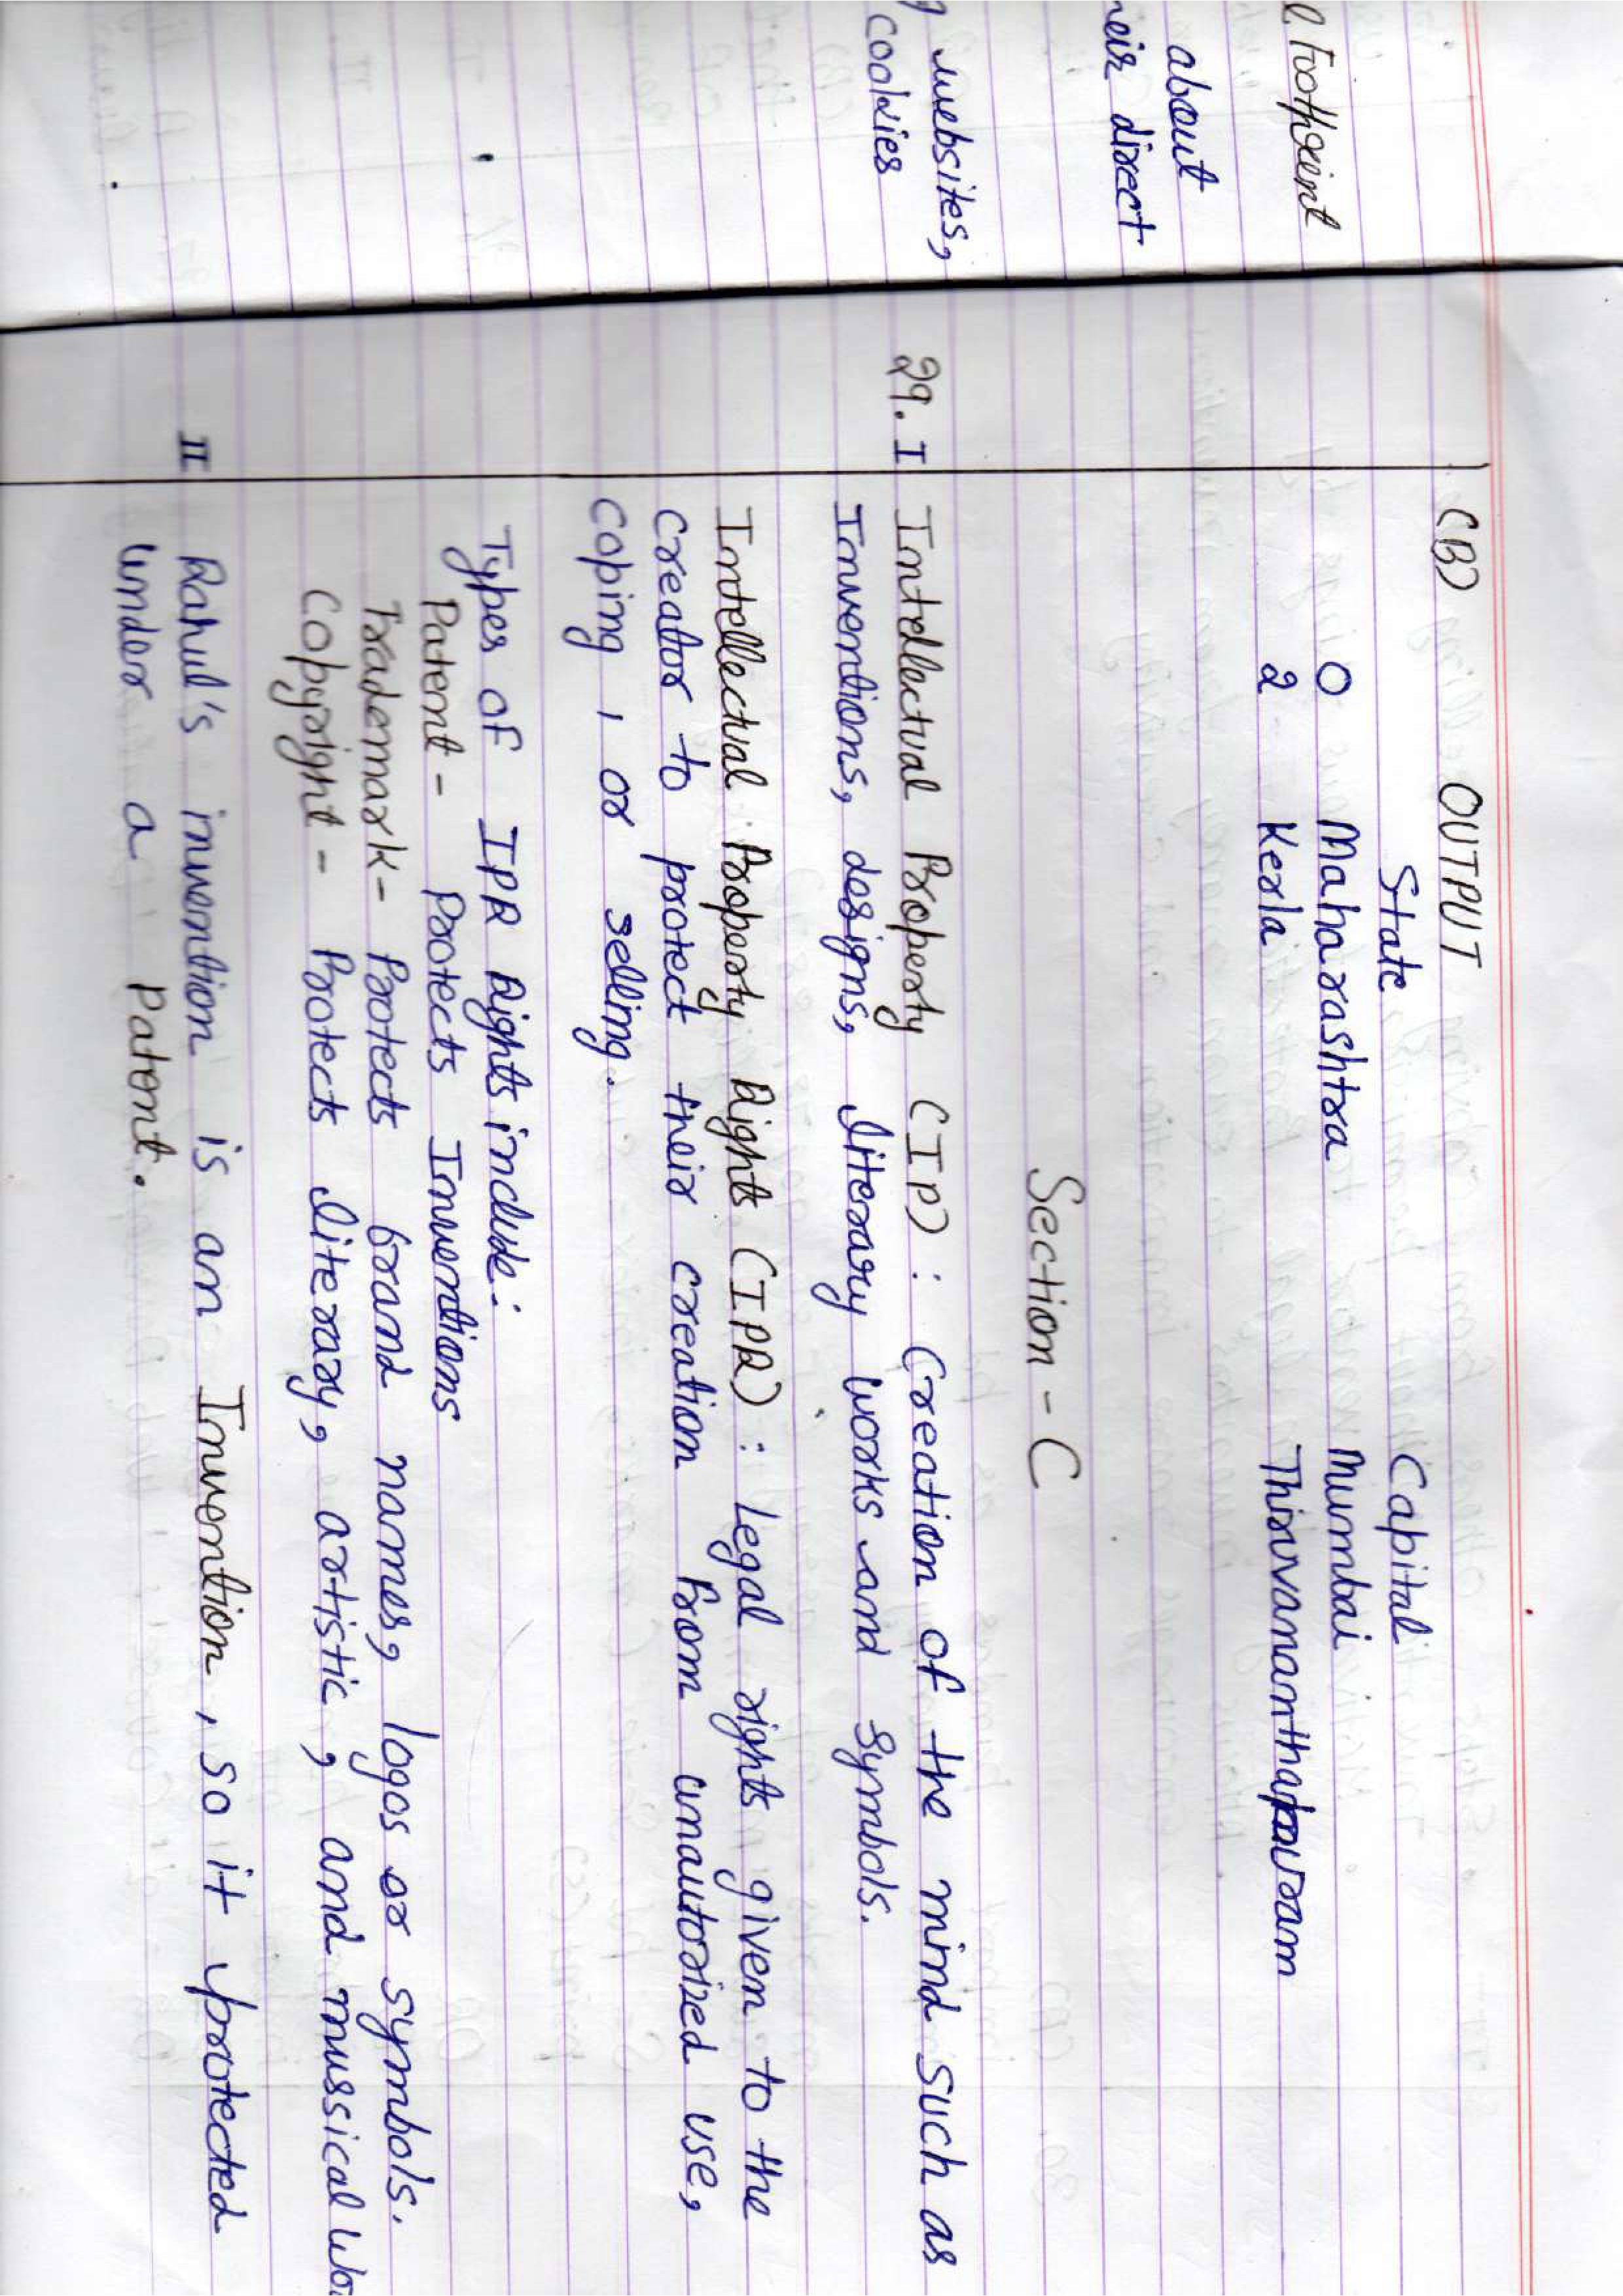 (B) OUTPUT
State Capital
0 Maharashtra Mumbai
2 Kerla Thiruvananthapuram
Footprint
about
direct
Section - C
websites,
cookies
29. I Intellectual Property (IP) : Creation of the mind such as
Inventions, designs, literary works and Symbols.
Intellectual Property Rights (IPR) : Legal rights given to the
creator to protect their creation from unautorized use,
coping , or selling.
Types of IPR Rights include:
Patent - Protects Inventions
Trademark - Protects brand names, logos or symbols.
Copyright - Protects literary, artistic, and mussical
II Rahul's invention is an Invention, so it protected
under a Patent.